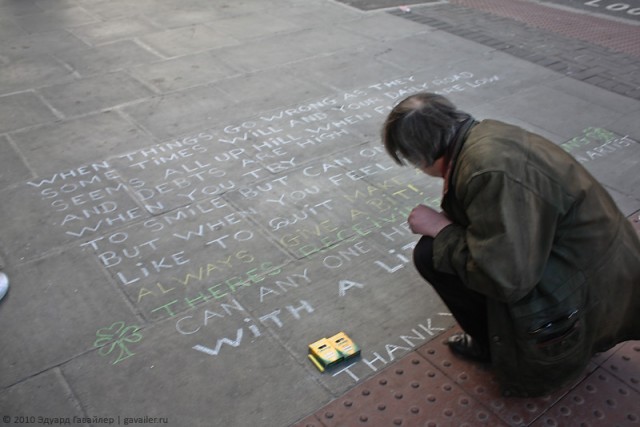 WHEN THINGS GO WRONG AS THEY
SOME TIMES WILL AND YOUR ROAD
SEEMS ALL UP HILL WHEN FUNDS ARE LOW
AND DEBTS ARE HIGH
WHEN YOU TRY
TO SMILE BUT CAN
BUT WHEN YOU FEEL
LIKE TO QUIT
ALWAYS GIVE A BIT!
THERES
CAN ANY ONE HE
WITH A LIT
THANK Y
LOO
© 2010 Эдуард Гавайлер | gavailer.ru